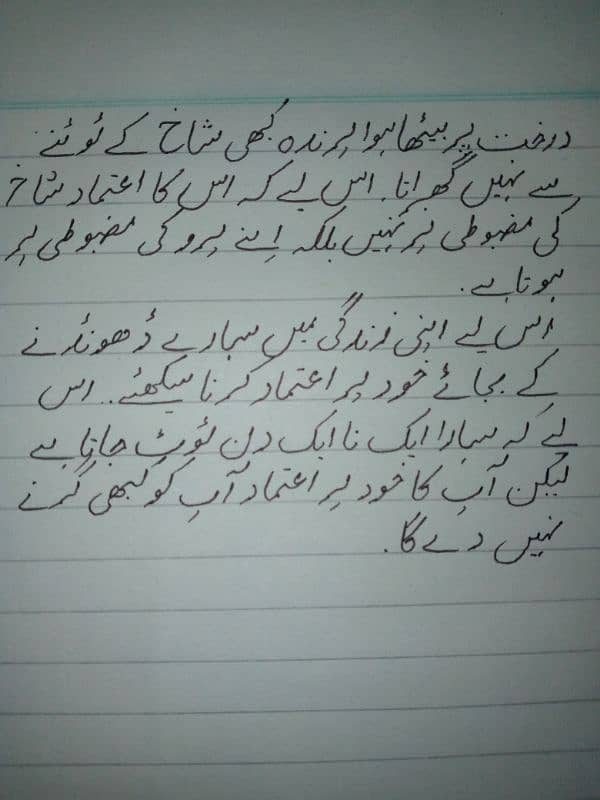 درخت پر بیٹھا ہوا پرندہ کبھی شاخ کے ٹوٹنے
سے نہیں گھبراتا. اس لیے کہ اس کا اعتماد شاخ
کی مضبوطی پر نہیں بلکہ اپنے پرو کی مضبوطی پر
ہوتا ہے.
اس لیے اپنی زندگی میں سہارے ڈھونڈنے
کے بجائے خود پر اعتماد کرنا سیکھئے. اس
لے کہ سہارا ایک نا ایک دن ٹوٹ جاتا ہے
لیکن آپ کا خود پر اعتماد آپ کو کبھی گرنے
نہیں دے گا.